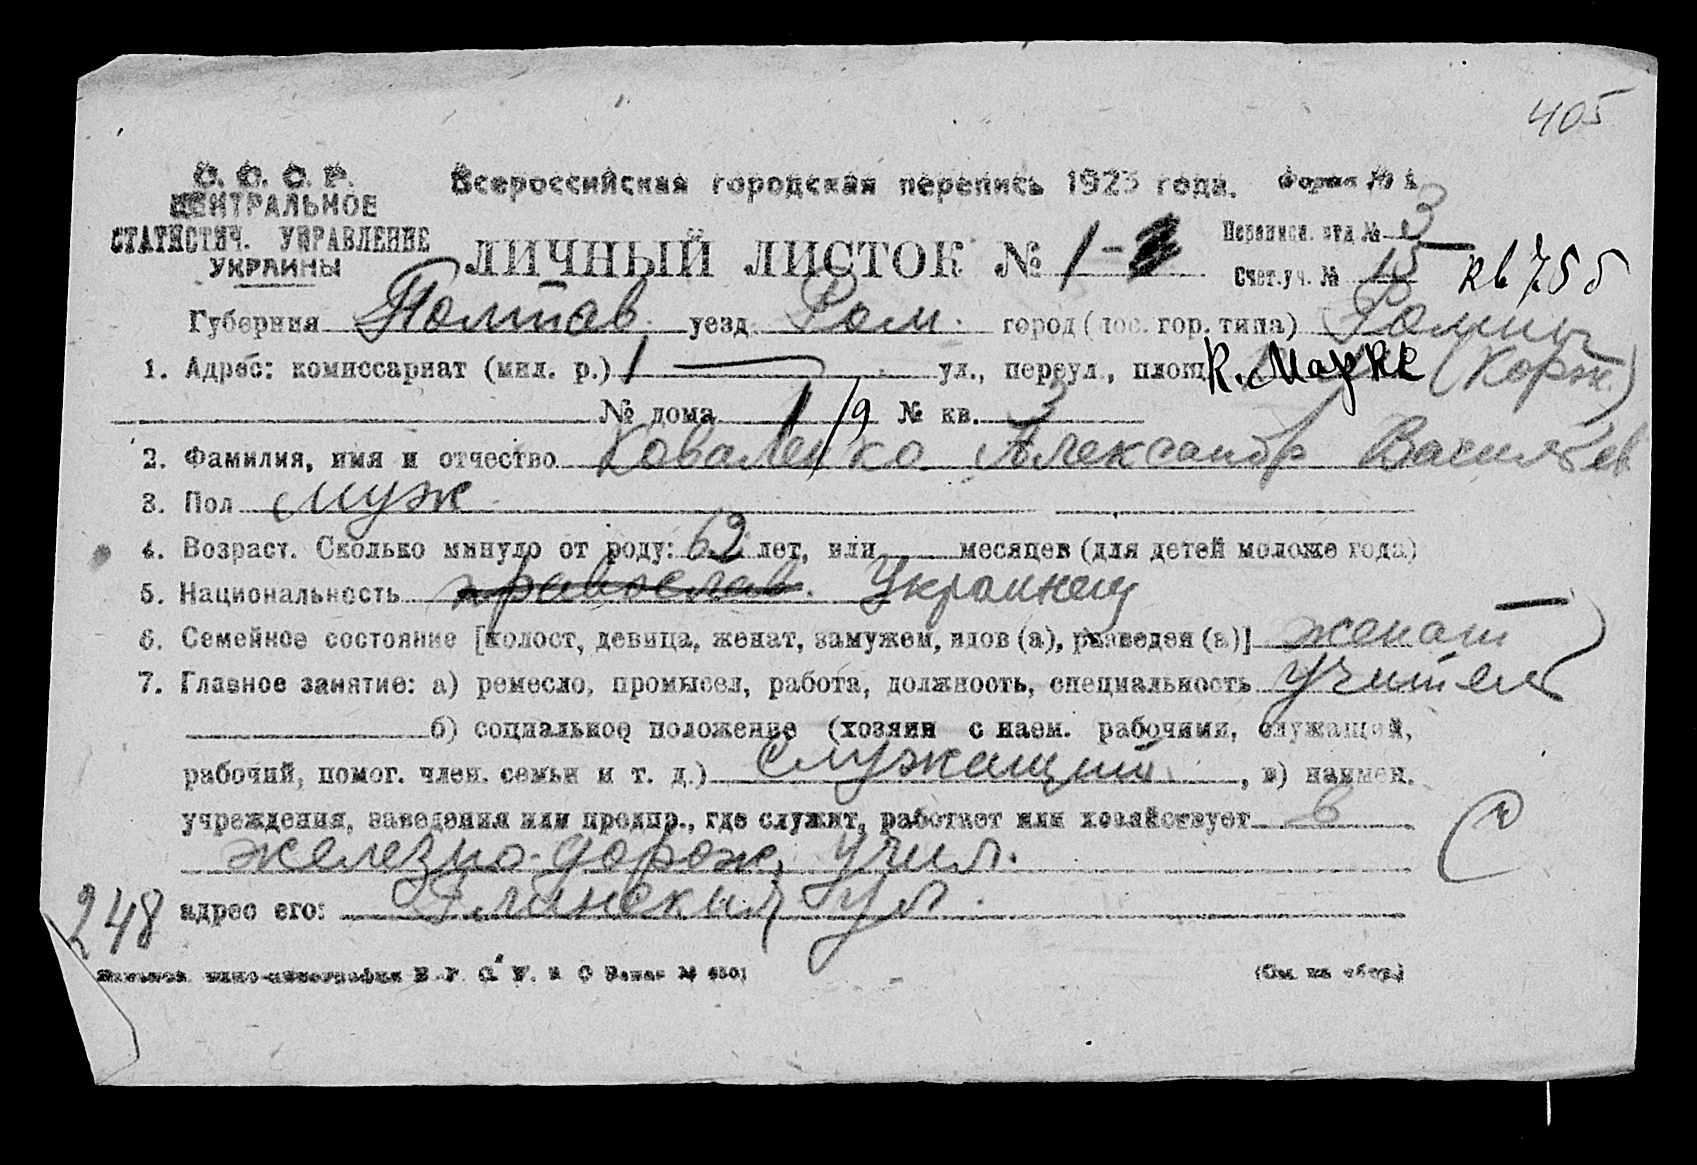 405
С. С. С. Р. Всероссийская городская перепись 1923 года. Форма № 1
ЦЕНТРАЛЬНОЕ
СТАТИСТИЧ. УПРАВЛЕНИЕ
УКРАИНЫ
ЛИЧНЫЙ ЛИСТОК № 1-
Переписн. отд № 3
Счет.уч. № 15 кв 75 б
Губерния Полтав. уезд Ром. город (пос. гор. типа) Ромны
1. Адрес: комиссариат (мил. р.) 1 ул., переул., площ. К. Маркс (Корж.)
№ дома 1/9 № кв. 3
2. Фамилия, имя и отчество Коваленко Александр Васильев
3. Пол муж
4. Возраст. Сколько минуло от роду: 62 лет, или месяцев (для детей моложе года)
5. Национальность православ. Украинец
6. Семейное состояние [холост, девица, женат, замужем, вдов (а), разведен (а)] женат
7. Главное занятие: а) ремесло, промысел, работа, должность, специальность учитель
б) социальное положение (хозяин с наем. рабочими, служащий,
рабочий, помог. член. семьи и т. д.) служащий, в) наимен.
учреждения, заведения или предпр., где служит, работает или хозяйствует в
железно-дорож. учил.
248 адрес его: Глинский ул.
(См. на обор.)